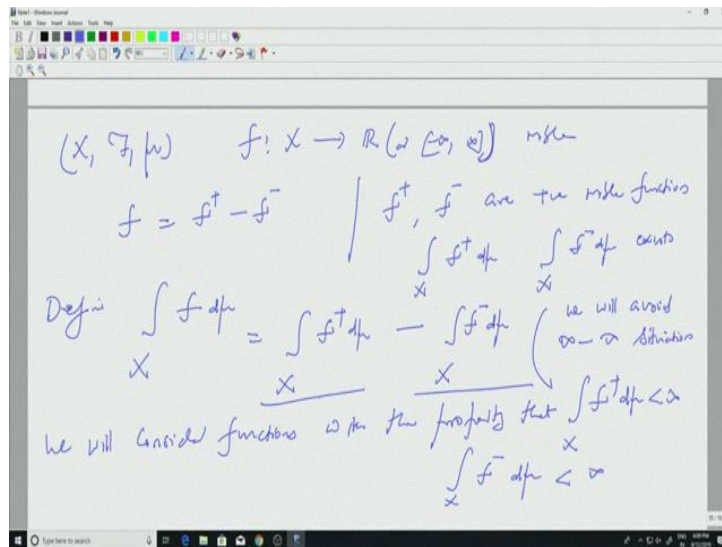 Note1 - Windows Journal
File Edit View Insert Actions Tools Help
(X, F, μ) f: X → ℝ (or [-∞, ∞]) mble
f = f⁺ - f⁻ | f⁺, f⁻ are +ve mble functions
∫_X f⁺ dμ ∫_X f⁻ dμ exists
Define ∫_X f dμ = ∫_X f⁺ dμ - ∫_X f⁻ dμ
we will avoid
∞ - ∞ situation
we will consider functions with the property that ∫_X f⁺ dμ < ∞
∫_X f⁻ dμ < ∞
Type here to search